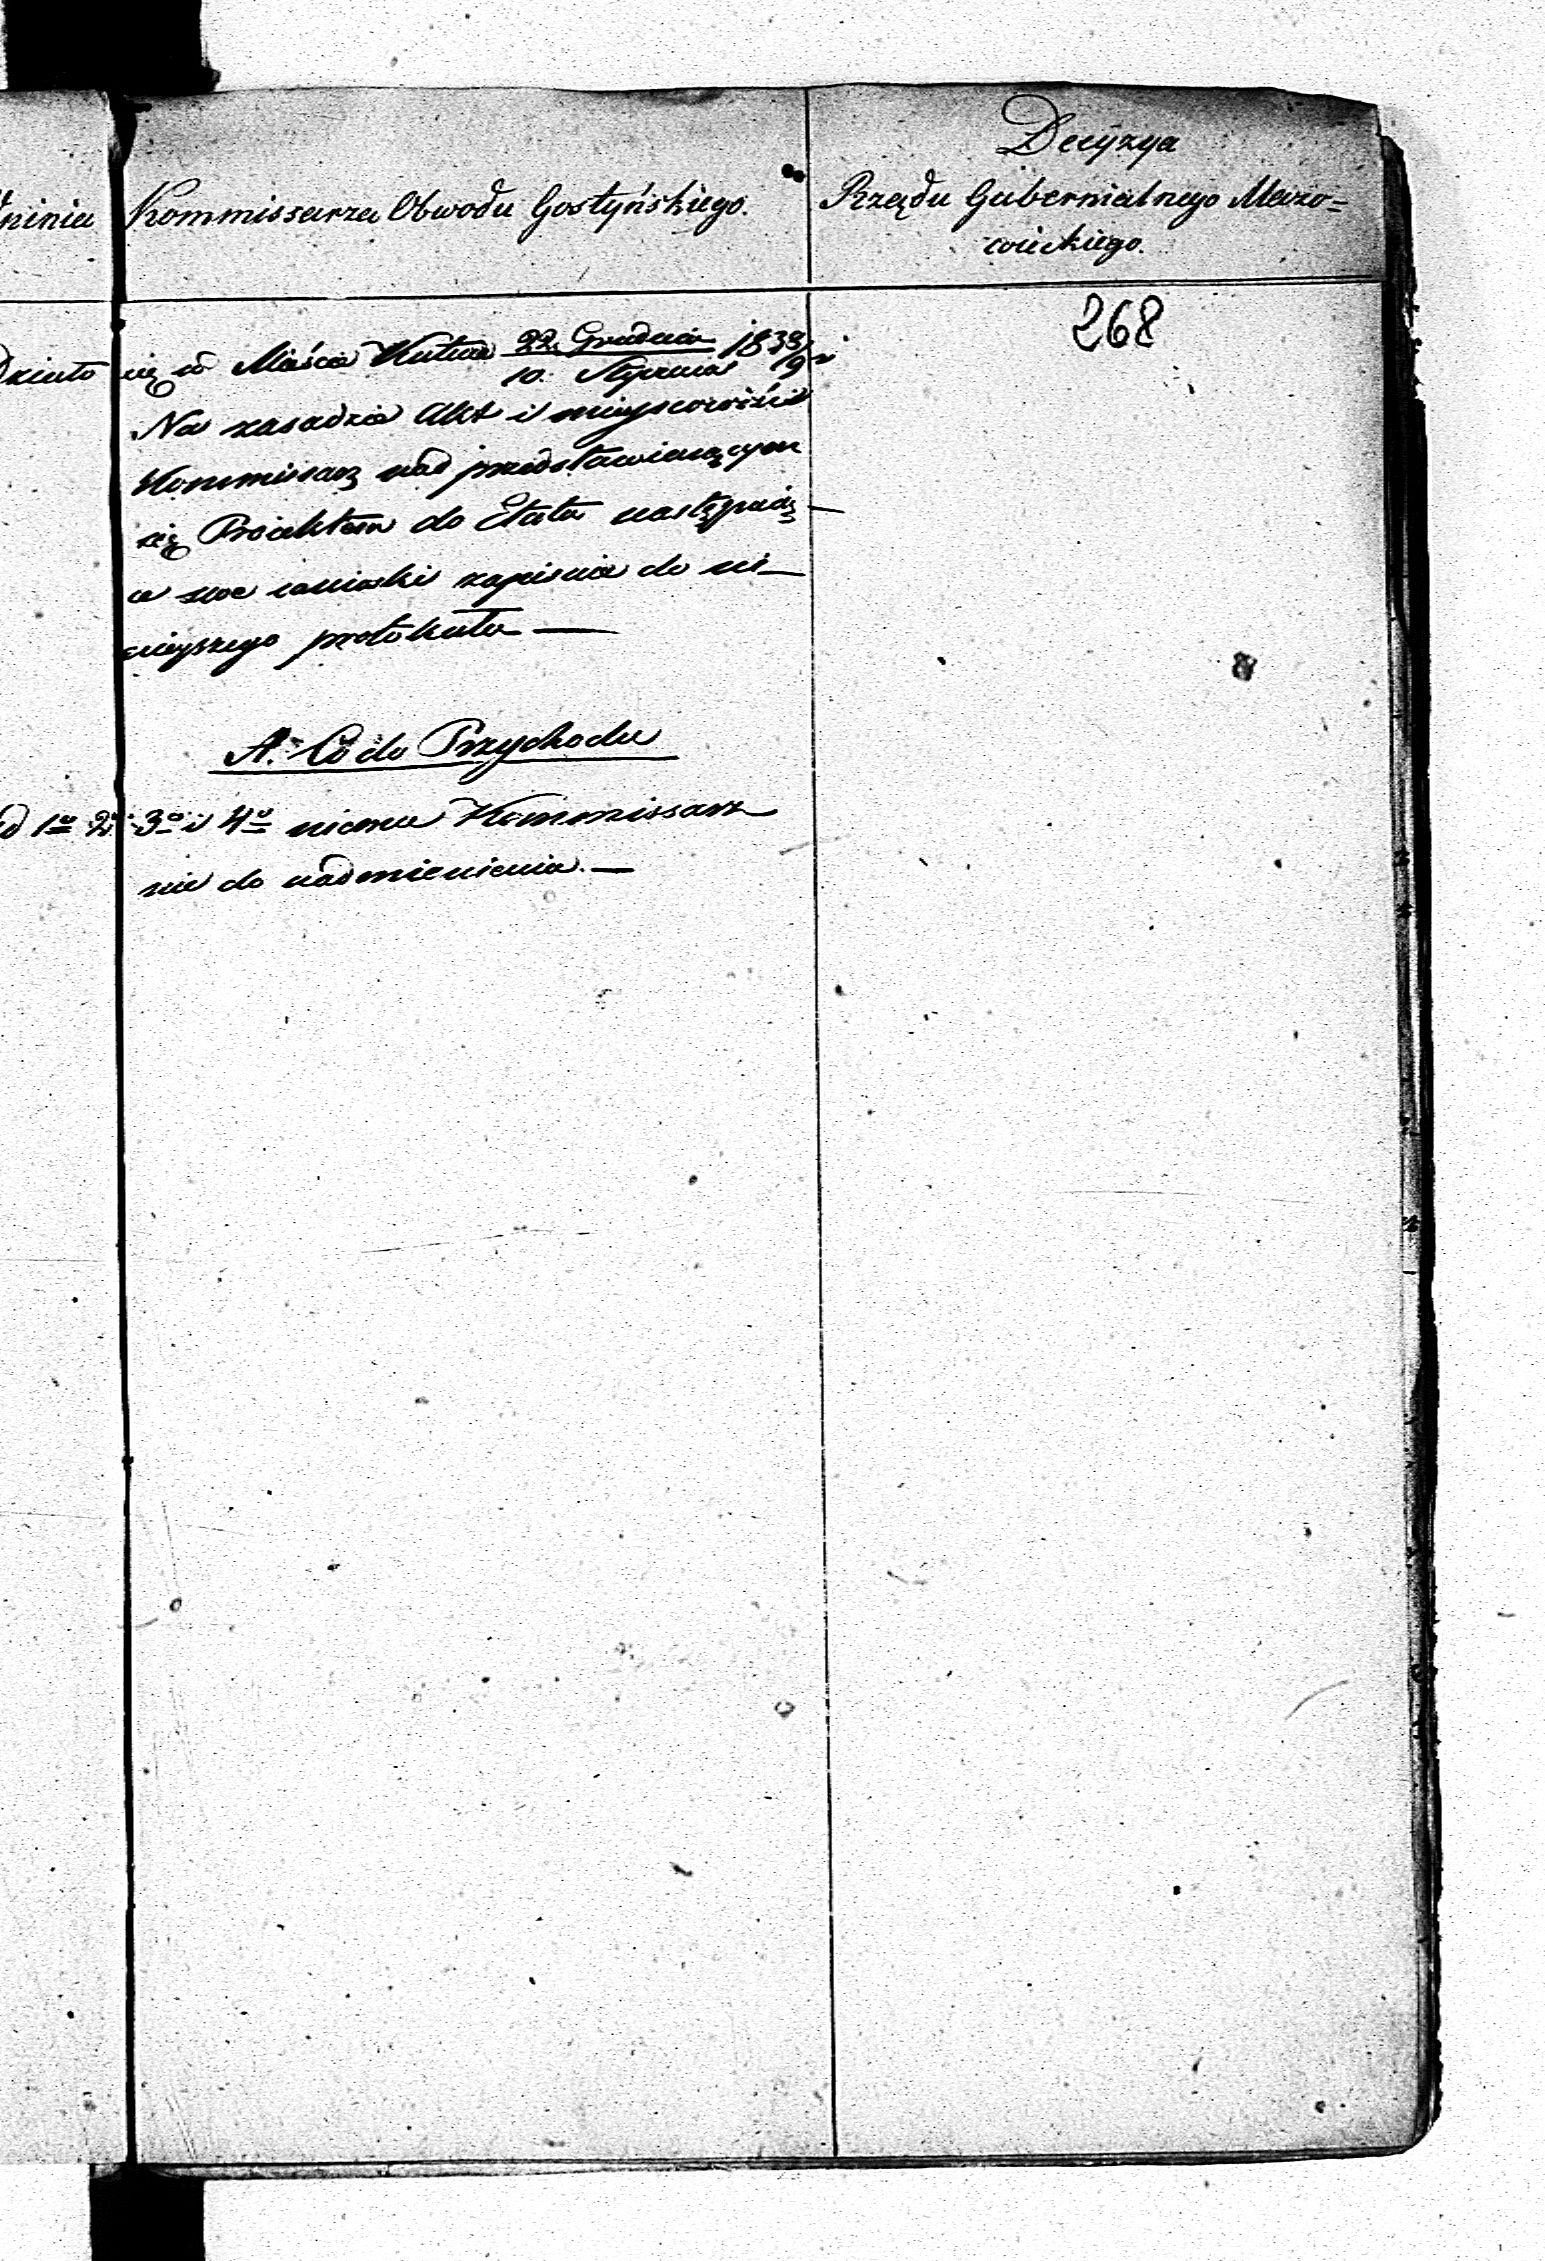 Decyzya
Kommissarza Obwodu Gostyńskiego.
Rządu Gubernialnego Mazo=
wieckiego.
268
Działo się w Mieście Kutnie 22 Grudnia 1838/
10. Stycznia 9
Na zasadzie Akt i mieyscowości
Kommissarz nad przedstawiaiącym
się Proiektem do Etatu następuią—
ce swe wnioski zapisuie do ni—
nieyszego protokułu —
A. Co do Przychodu
ad 1o 2o 3o i 4o niema Kommissarz
nic do nadmienienia. —